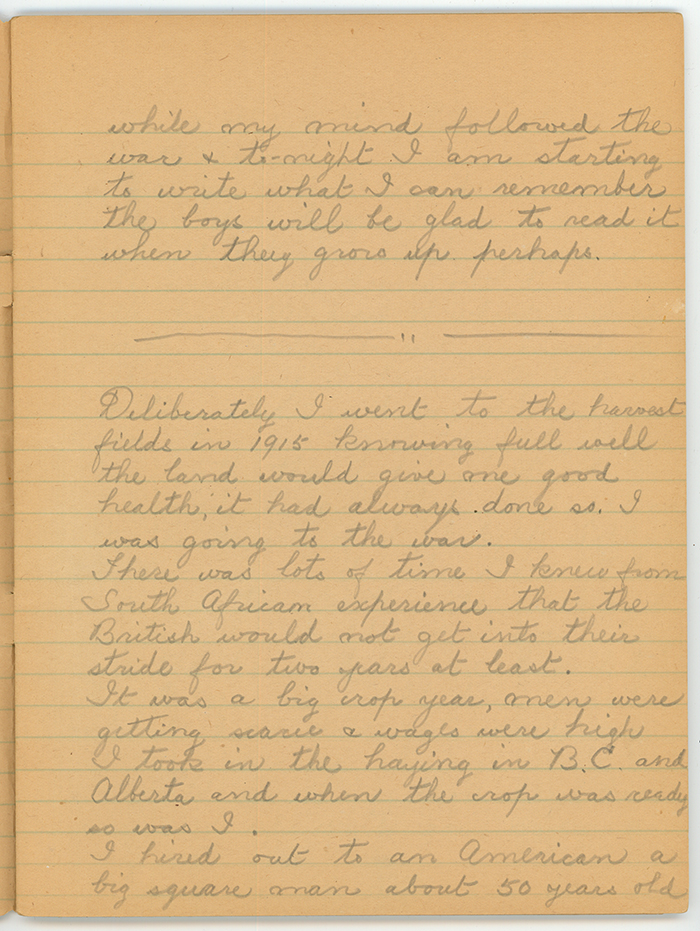 while my mind followed the
war & to-night I am starting
to write what I can remember
the boys will be glad to read it
when they grow up perhaps.
"
Deliberately I went to the harvest
fields in 1915 knowing full well
the land would give me good
health, it had always done so. I
was going to the war.
There was lots of time I knew from
South African experience that the
British would not get into their
stride for two years at least.
It was a big crop year, men were
getting scarce & wages were high
I took in the haying in B.C. and
Alberta and when the crop was ready
so was I.
I hired out to an American a
big square man about 50 years old